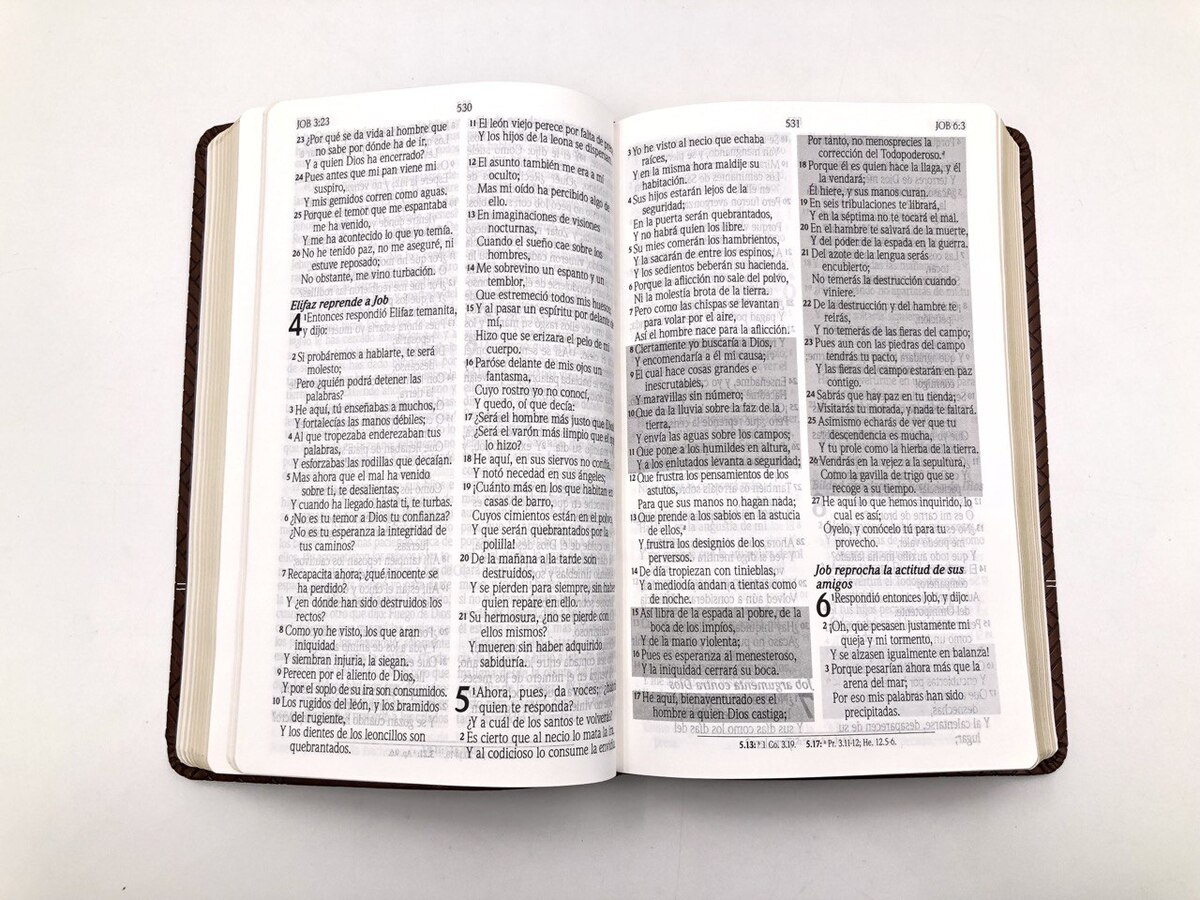 JOB 3:23
530
23 ¿Por qué se da vida al hombre que
no sabe por dónde ha de ir,
Y a quien Dios ha encerrado?
24 Pues antes que mi pan viene mi
suspiro,
Y mis gemidos corren como aguas.
25 Porque el temor que me espantaba
me ha venido,
Y me ha acontecido lo que yo temía.
26 No he tenido paz, no me aseguré, ni
estuve reposado;
No obstante, me vino turbación.
Elifaz reprende a Job
4 1 Entonces respondió Elifaz temanita,
y dijo:
2 Si probáremos a hablarte, te será
molesto;
Pero ¿quién podrá detener las
palabras?
3 He aquí, tú enseñabas a muchos,
Y fortalecías las manos débiles;
4 Al que tropezaba enderezaban tus
palabras,
Y esforzabas las rodillas que decaían.
5 Mas ahora que el mal ha venido
sobre ti, te desalientas;
Y cuando ha llegado hasta ti, te turbas.
6 ¿No es tu temor a Dios tu confianza?
¿No es tu esperanza la integridad de
tus caminos?
7 Recapacita ahora; ¿qué inocente se
ha perdido?
Y ¿en dónde han sido destruidos los
rectos?
8 Como yo he visto, los que aran
iniquidad
Y siembran injuria, la siegan.
9 Perecen por el aliento de Dios,
Y por el soplo de su ira son consumidos.
10 Los rugidos del león, y los bramidos
del rugiente,
Y los dientes de los leoncillos son
quebrantados.
11 El león viejo perece por falta de
Y los hijos de la leona se dispersan.
12 El asunto también me era a mí
oculto;
Mas mi oído ha percibido algo de
ello.
13 En imaginaciones de visiones
nocturnas,
Cuando el sueño cae sobre los
hombres,
14 Me sobrevino un espanto y un
temblor,
Que estremeció todos mis huesos
15 Y al pasar un espíritu por delante de
mí,
Hizo que se erizara el pelo de mi
cuerpo.
16 Paróse delante de mis ojos un
fantasma,
Cuyo rostro yo no conocí,
Y quedo, oí que decía:
17 ¿Será el hombre más justo que
¿Será el varón más limpio que el
lo hizo?
18 He aquí, en sus siervos no confía,
Y notó necedad en sus ángeles;
19 ¡Cuánto más en los que habitan en
casas de barro,
Cuyos cimientos están en el polvo,
Y que serán quebrantados por la
polilla!
20 De la mañana a la tarde son
destruidos,
Y se pierden para siempre, sin haber
quien repare en ello.
21 Su hermosura, ¿no se pierde con
ellos mismos?
Y mueren sin haber adquirido
sabiduría.
5 1 Ahora, pues, da voces;
quien te responda?
¿Y a cuál de los santos te volverás?
2 Es cierto que al necio lo mata la ira,
Y al codicioso lo consume la envidia
531
JOB 6:3
3 Yo he visto al necio que echaba
raíces,
Y en la misma hora maldije su
habitación.
4 Sus hijos estarán lejos de la
seguridad;
En la puerta serán quebrantados,
Y no habrá quien los libre.
5 Su mies comerán los hambrientos,
Y la sacarán de entre los espinos,
Y los sedientos beberán su hacienda.
6 Porque la aflicción no sale del polvo,
Ni la molestia brota de la tierra.
7 Pero como las chispas se levantan
para volar por el aire,
Así el hombre nace para la aflicción.
8 Ciertamente yo buscaría a Dios,
Y encomendaría a él mi causa;
9 El cual hace cosas grandes e
inescrutables,
Y maravillas sin número;
10 Que da la lluvia sobre la faz de la
tierra,
Y envía las aguas sobre los campos;
11 Que pone a los humildes en altura,
Y a los enlutados levanta a seguridad;
12 Que frustra los pensamientos de los
astutos,
Para que sus manos no hagan nada;
13 Que prende a los sabios en la astucia
de ellos,ª
Y frustra los designios de los
perversos.
14 De día tropiezan con tinieblas,
Y a mediodía andan a tientas como
de noche.
15 Así libra de la espada al pobre, de la
boca de los impíos,
Y de la mano violenta;
16 Pues es esperanza al menesteroso,
Y la iniquidad cerrará su boca.
17 He aquí, bienaventurado es el
hombre a quien Dios castiga;
Por tanto, no menosprecies la
corrección del Todopoderoso.ª
18 Porque él es quien hace la llaga, y él
la vendará;
Él hiere, y sus manos curan.
19 En seis tribulaciones te librará,
Y en la séptima no te tocará el mal.
20 En el hambre te salvará de la muerte,
Y del poder de la espada en la guerra.
21 Del azote de la lengua serás
encubierto;
No temerás la destrucción cuando
viniere.
22 De la destrucción y del hambre te
reirás,
Y no temerás de las fieras del campo;
23 Pues aun con las piedras del campo
tendrás tu pacto,
Y las fieras del campo estarán en paz
contigo.
24 Sabrás que hay paz en tu tienda;
Visitarás tu morada, y nada te faltará.
25 Asimismo echarás de ver que tu
descendencia es mucha,
Y tu prole como la hierba de la tierra.
26 Vendrás en la vejez a la sepultura,
Como la gavilla de trigo que se
recoge a su tiempo.
27 He aquí lo que hemos inquirido, lo
cual es así;
Óyelo, y conócelo tú para tu
provecho.
Job reprocha la actitud de sus
amigos
6 1 Respondió entonces Job, y dijo:
2 ¡Oh, que pesasen justamente mi
queja y mi tormento,
Y se alzasen igualmente en balanza!
3 Porque pesarían ahora más que la
arena del mar;
Por eso mis palabras han sido
precipitadas.
5.13: ª 1 Co. 3.19. 5.17: ª Pr. 3.11-12; He. 12.5-6.